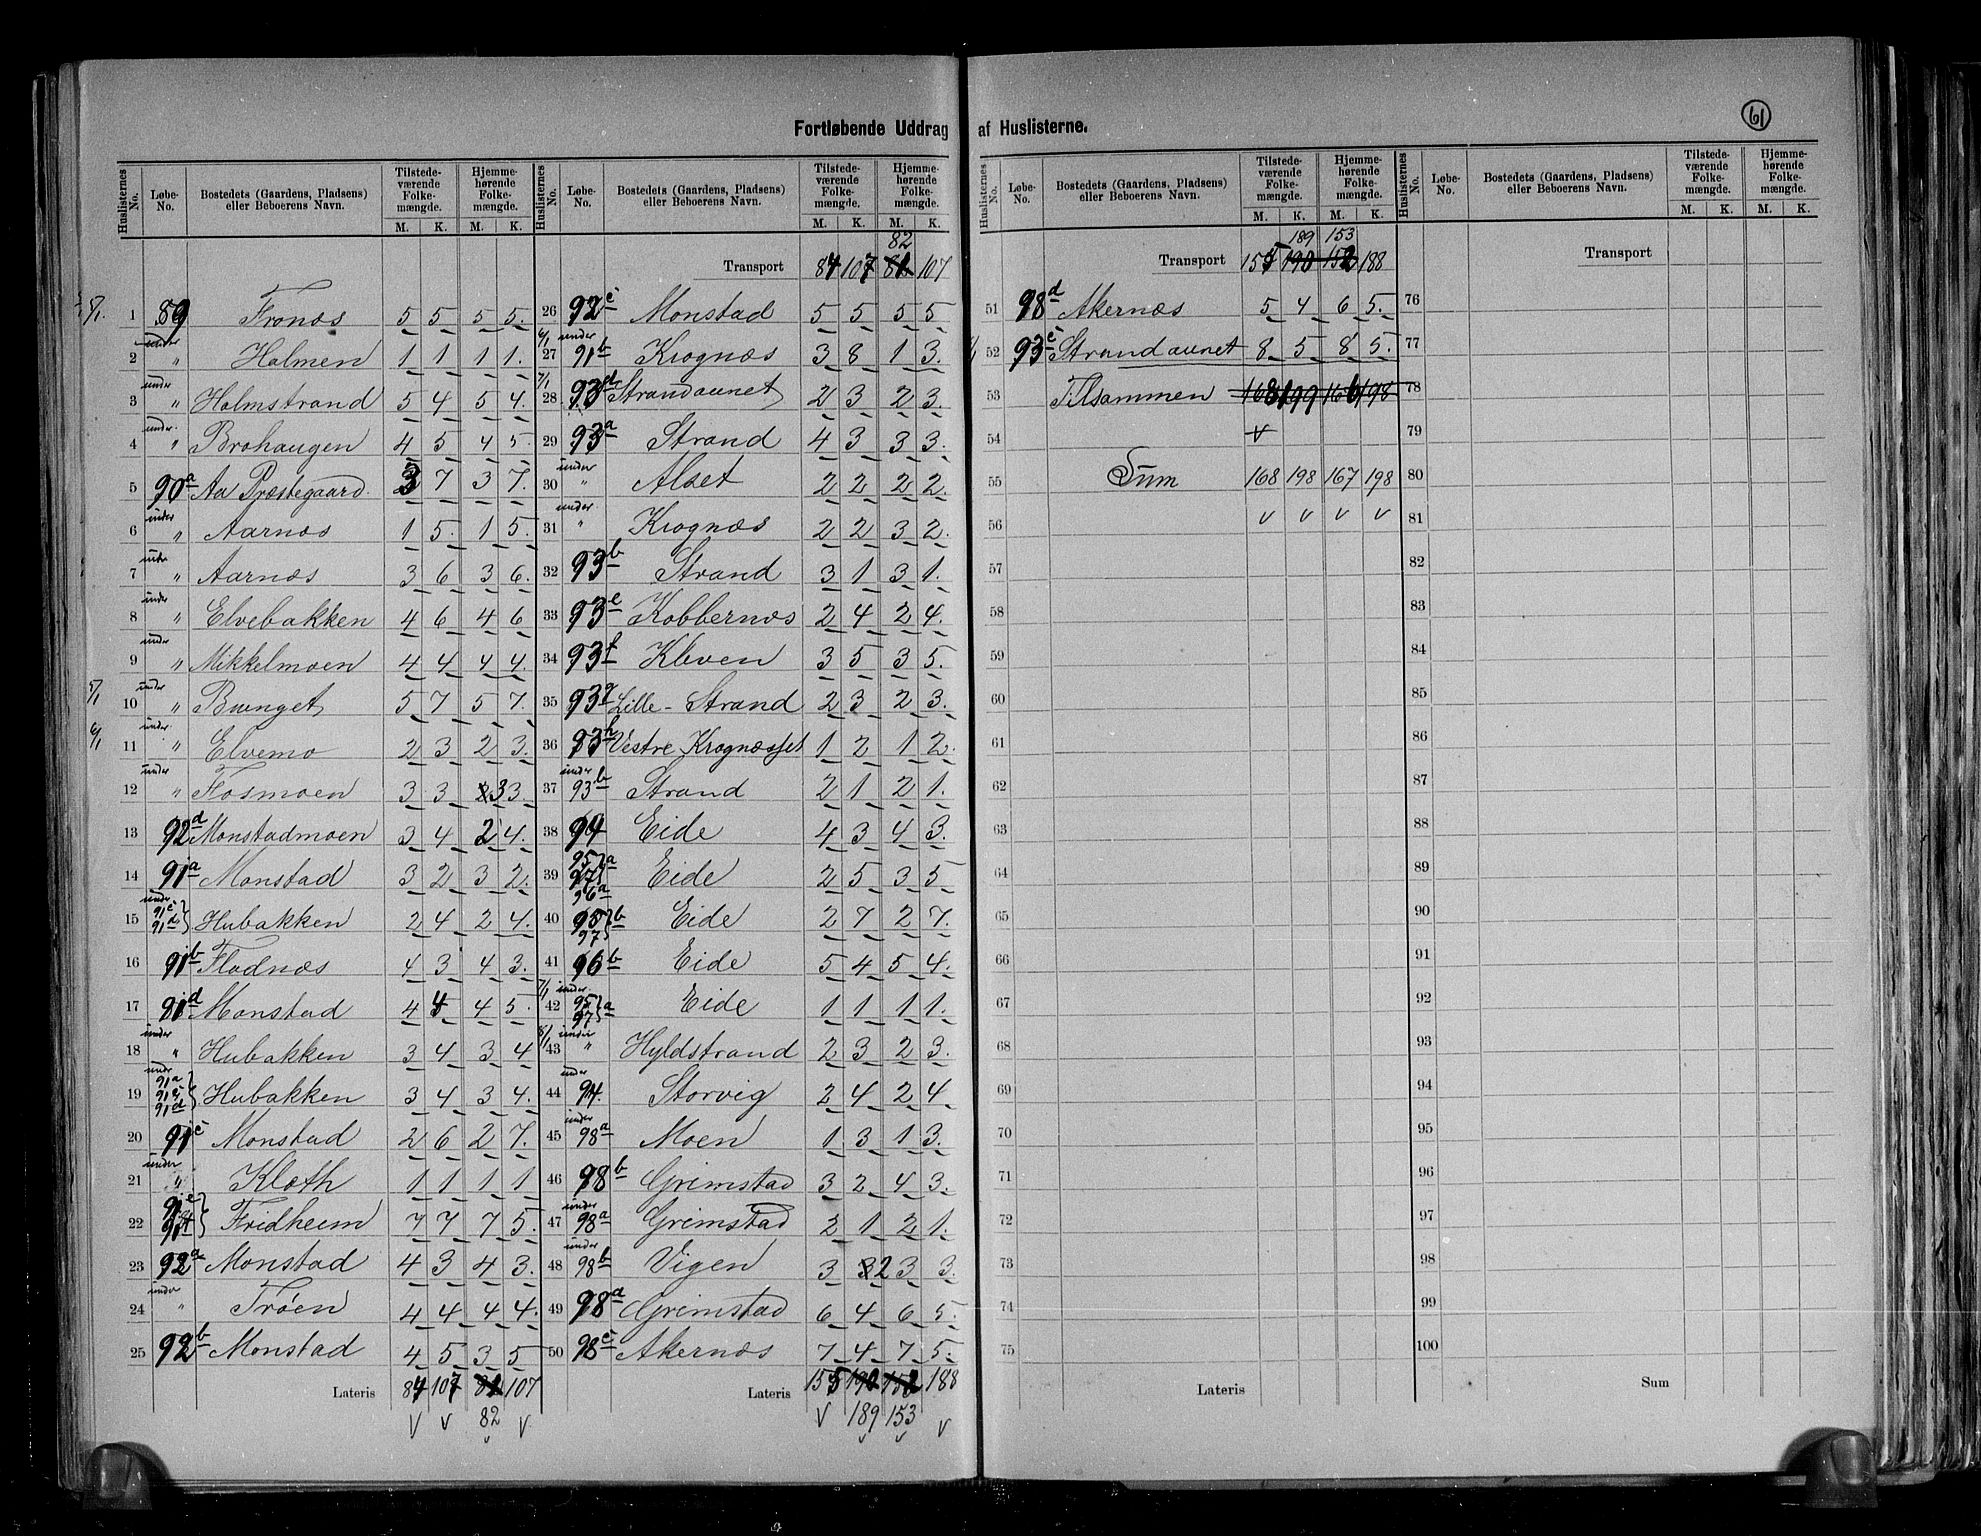 Fortløbende Uddrag af Huslisterne.
61
Huslisternes No. Løbe-No. Bostedets (Gaardens, Pladsens) eller Beboerens Navn. Tilstedeværende Folkemængde. M. K. Hjemmehørende Folkemængde. M. K.
5/1. 1 89 Fronæs 5 5 5 5.
2 under " Holmen 1 1 1 1.
3 under " Holmstrand 5 4 5 4.
4 under " Brohaugen 4 5 4 5.
5 90a Aa Præstegaard. 3 7 3 7.
6 under " Aarnæs 1 5. 1 5.
7 under " Aarnæs 3 6 3 6.
8 under " Elvebakken 4 6 4 6
9 under " Mikkelmoen 4 4 4 4.
5/1 10 under " Bunget 5 7 5 7.
6/1 11 under " Elvemo 2 3 2 3.
12 under " Flosmoen 3 3 3 3.
13 92d Monstadmoen 3 4 2 4.
14 91a Monstad 3 2 3 2.
15 under 91c 91d } Hubakken 2 4 2 4.
16 91b Flodnæs 4 3 4 3.
17 91d Monstad 4 4 4 5.
18 under " Hubakken 3 4 3 4
19 under 91a 91c 91d } Hubakken 3 4 3 4.
20 91c Monstad 2 6 2 7.
21 under " Kloth 1 1 1 1
22 91e 91f } Fridheim 7 7 7 5.
23 92a Monstad 4 3 4 3.
24 under " Trøen 4 4 4 4.
25 92b Monstad 4 5 3 5
Lateris 84 107 81 107
82
Huslisternes No. Løbe-No. Bostedets (Gaardens, Pladsens) eller Beboerens Navn. Tilstedeværende Folkemængde. M. K. Hjemmehørende Folkemængde. M. K.
82
Transport 84 107 81 107
26 92c Monstad 5 5 5 5
6/1 27 under 91b Krognæs 3 8 1 3.
7/1 28 93d Strandaunet 2 3 2 3.
29 93a Strand 4 3 3 3.
30 under " Alset 2 2 2 2.
31 under " Krognæs 2 2 3 2.
32 93b Strand 3 1 3 1.
33 93e Kobbernæs 2 4 2 4.
34 93f Kleven 3 5 3 5.
35 93g Lille-Strand 2 3 2 3.
36 93h Vestre Krognæsset 1 2 1 2.
37 under 93b Strand 2 1 2 1.
38 94 Eide 4 3 4 3.
39 95 97 } a 96a Eide 2 5 3 5
40 95 97 } b Eide 2 7 2 7.
41 96b Eide 5 4 5 4.
7/1 42 under 95 97 } a Eide 1 1 1 1.
8/1 43 under " Hyldstrand 2 3 2 3.
44 under 94. Storvig 2 4 2 4
45 under 98a Moen 1 3 1 3.
46 98b Grimstad 3 2 4 3.
47 under 98a Grimstad 2 1 2 1.
48 under 98b Vigen 3 2 3 3.
49 98a Grimstad 6 4 6 5.
50 98c Akernæs 7 4 7 5.
Lateris 155 190 152 188
189 153
Huslisternes No. Løbe-No. Bostedets (Gaardens, Pladsens) eller Beboerens Navn. Tilstedeværende Folkemængde. M. K. Hjemmehørende Folkemængde. M. K.
189 153
Transport 155 190 152 188
51 98d Akernæs 5 4 6 5.
52 93c Strandaunet 8 5 8 5.
53 Tilsammen 168 199 166 198
54
55 Sum 168 198 167 198
56
57
58
59
60
61
62
63
64
65
66
67
68
69
70
71
72
73
74
75
Lateris
Huslisternes No. Løbe-No. Bostedets (Gaardens, Pladsens) eller Beboerens Navn. Tilstedeværende Folkemængde. M. K. Hjemmehørende Folkemængde. M. K.
Transport
76
77
78
79
80
81
82
83
84
85
86
87
88
89
90
91
92
93
94
95
96
97
98
99
100
Sum